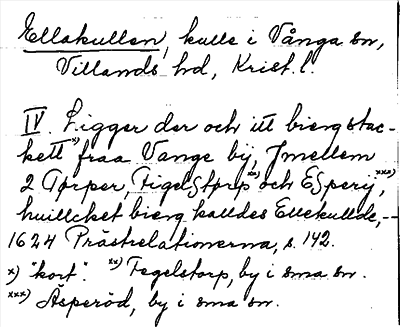 Ellakullen, kulle i Vånga sn,
Villands hd, Krist. l.
IV. Ligger der och itt bierg stac-
kett x) fraa Vange bÿ, Jmellem
2 Torper, Figelstorp xx) och Espery, xxx)
huillcket bierg kalldes Ellekullde, --
1624 Prästrelationerna, s. 142.
x) "kort". xx) Fegelstorp, by i sma sn.
xxx) Äsperöd, by i sma sn.